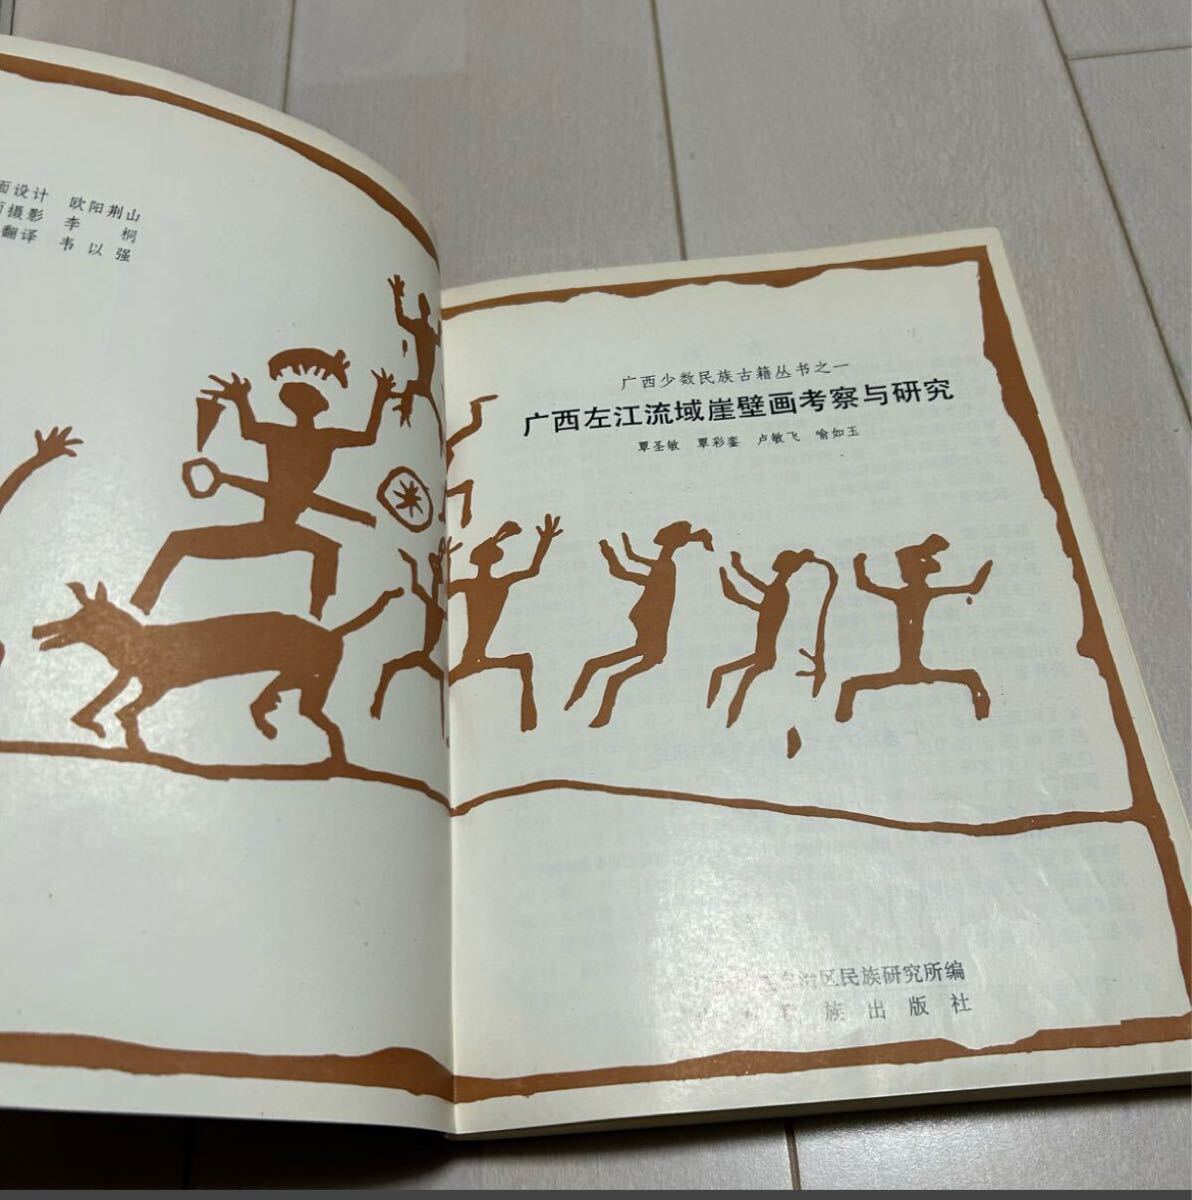 面设计 欧阳荆山
摄影 李 桐
翻译 韦以强
广西少数民族古籍丛书之一
广西左江流域崖壁画考察与研究
覃圣敏 覃彩銮 卢敏飞 喻如玉
自治区民族研究所编
民族出版社